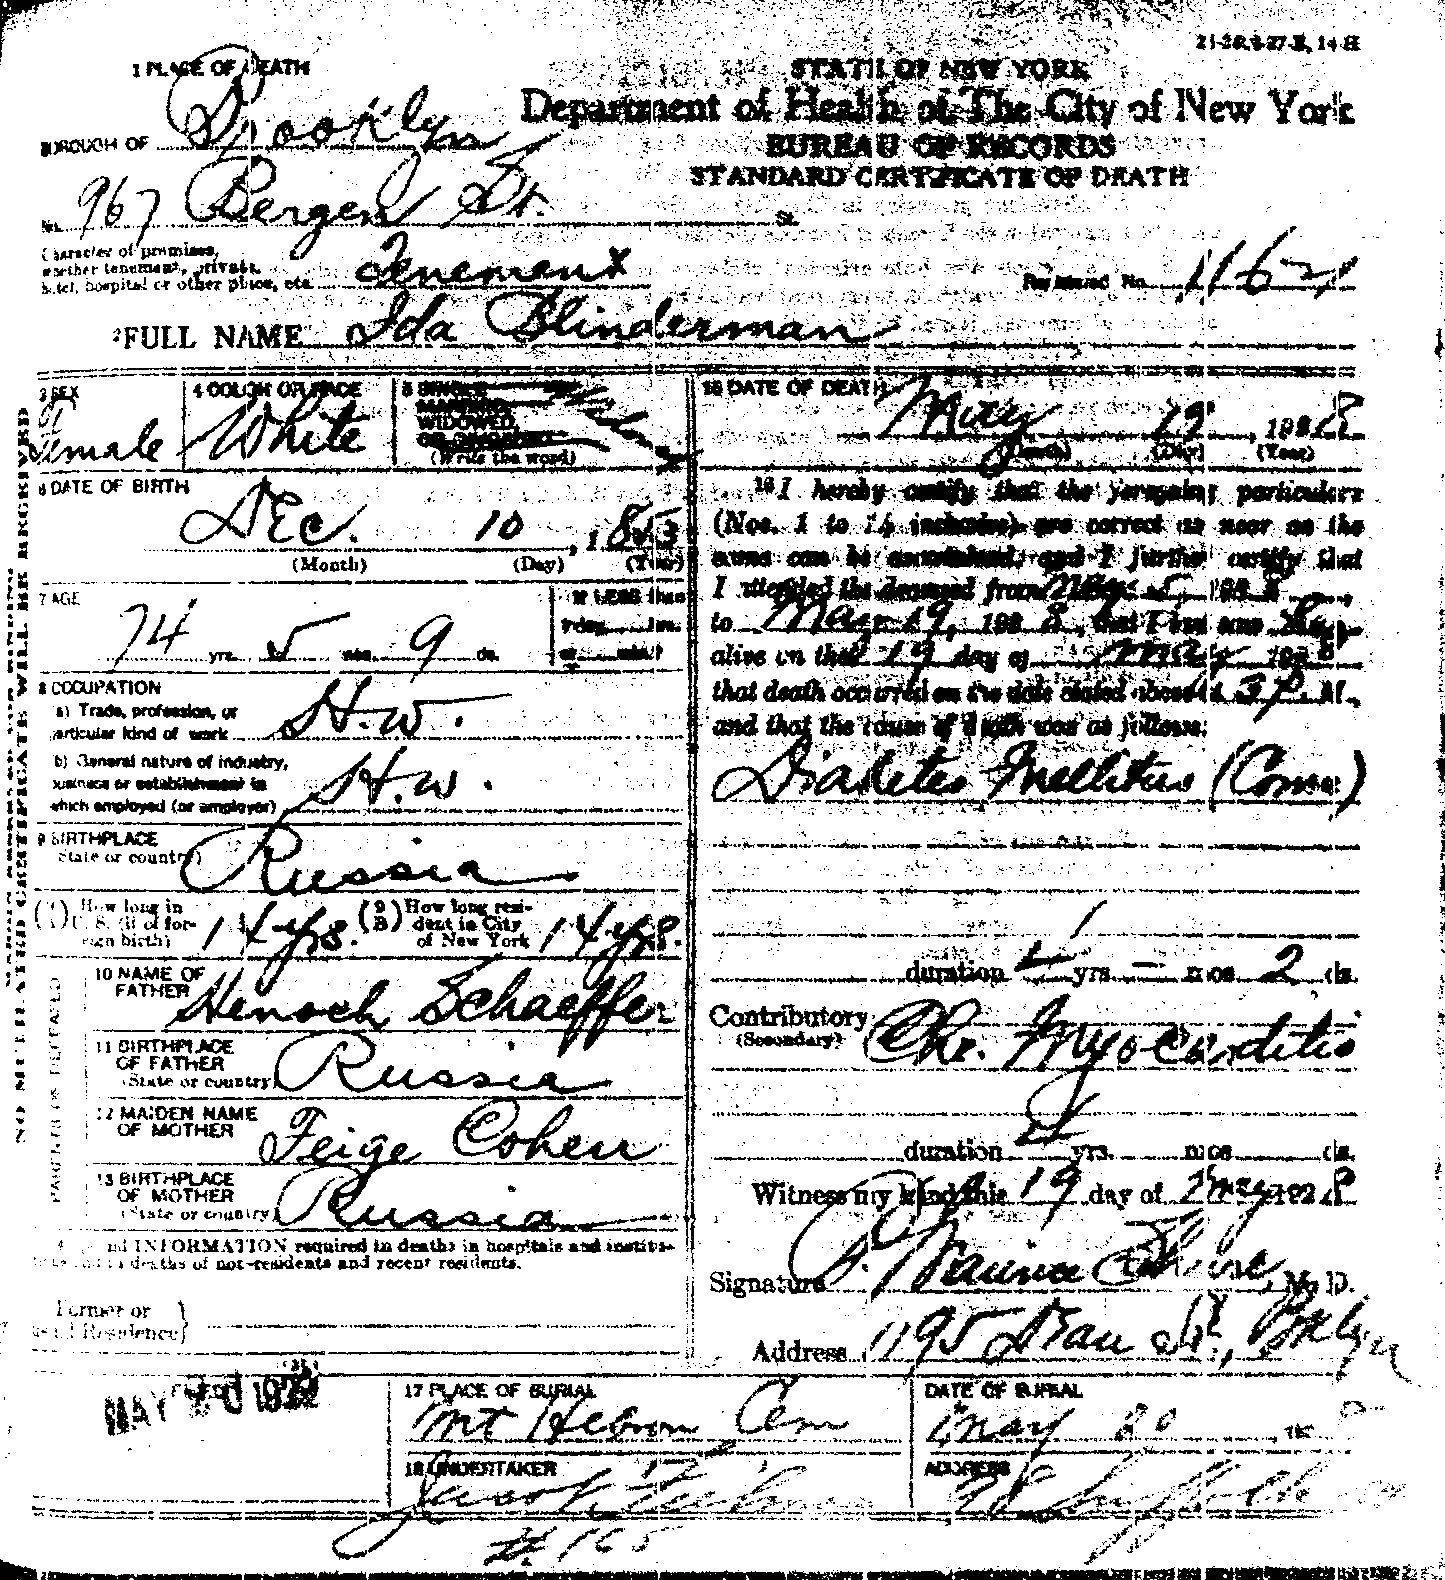 21-2638-27-B, 14-H
1 PLACE OF DEATH
STATE OF NEW YORK
Department of Health of The City of New York
BUREAU OF RECORDS
STANDARD CERTIFICATE OF DEATH
BOROUGH OF Brooklyn
No. 967 Bergen St. St.
Character of premises,
whether tenement, private,
hotel, hospital or other place, etc. Tenement
Registered No. 11621
2 FULL NAME Ida Blinderman
3 SEX
Female
4 COLOR OR RACE
White
5 SINGLE
MARRIED,
WIDOWED,
OR DIVORCED
(Write the word)
6 DATE OF BIRTH
Dec. 10, 1853
(Month) (Day) (Year)
7 AGE
74 yrs. 5 mos. 9 ds.
If LESS than
1 day, hrs.
or min.?
8 OCCUPATION
a) Trade, profession, or
particular kind of work H.W.
b) General nature of industry,
business or establishment in
which employed (or employer) H.W.
9 BIRTHPLACE
(State or country) Russia
(A) How long in
U. S. (if of for-
eign birth) 14 yrs.
(9 B) How long resi-
dent in City
of New York 14 yrs.
PARENTS OF DECEASED
10 NAME OF
FATHER Henoch Schaeffer
11 BIRTHPLACE
OF FATHER
(State or country) Russia
12 MAIDEN NAME
OF MOTHER Feige Cohen
13 BIRTHPLACE
OF MOTHER
(State or country) Russia
14 INFORMATION required in deaths in hospitals and institu-
tions and in deaths of non-residents and recent residents.
Former or
usual Residence
15 DATE OF DEATH
May 19, 1928
(Month) (Day) (Year)
16 I hereby certify that the foregoing particulars
(Nos. 1 to 14 inclusive) are correct as near as the
same can be ascertained, and I further certify that
I attended the deceased from May 5 1928,
to May 19, 1928, that I last saw her
alive on the 19 day of May 1928
that death occurred on the date stated above at 3 P. M.,
and that the cause of death was as follows:
Diabetes Mellitus (Coma)
duration 4 yrs. — mos. 2 ds.
Contributory
(Secondary) Chr. Myocarditis
duration 4 yrs. mos. ds.
Witness my hand this 19 day of May 1928
Signature Maurice M. D.
Address 1195 Dean St., Bklyn
MAY 20 1928
17 PLACE OF BURIAL
Mt Hebron Cem
DATE OF BURIAL
May 20, 1928
18 UNDERTAKER
Jacob
ADDRESS
Suffolk
# 165
NO MUTILATED CERTIFICATE WILL BE RECEIVED